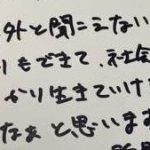 外と聞こえない
りもできて、社会
かり生きていけ
なぁと思いま